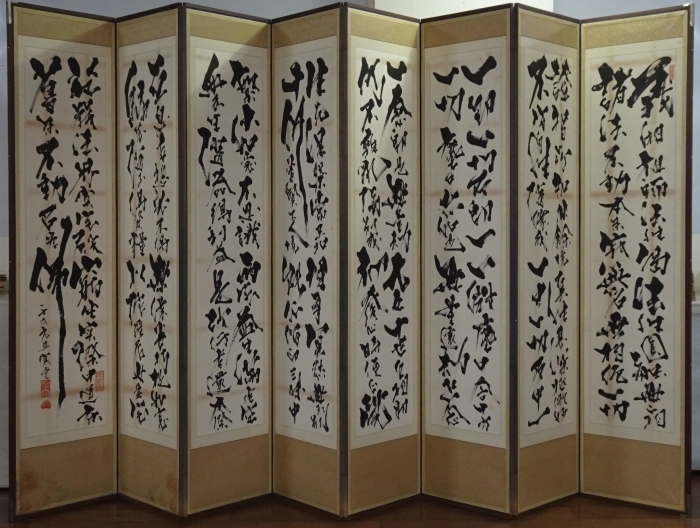 義湘祖師法性偈法性圓融無二相
諸法不動本來寂無名無相絶一切
證智所知非餘境眞性甚深極微妙
不守自性隨緣成一中一切多中一
一卽一切多卽一一微塵中含十方
一切塵中亦如是無量遠劫卽一念
一念卽是無量劫九世十世互相卽
仍不雜亂隔別成初發心時便正覺
生死涅槃常共和理事冥然無分別
十佛普賢大人境能仁海印三昧中
繁出如意不思議雨寶益生滿虛空
衆生隨器得利益是故行者還本際
叵息妄想必不得無緣善巧捉如意
歸家隨分得資糧以陀羅尼無盡寶
莊嚴法界實寶殿窮坐實際中道床
舊來不動名爲佛